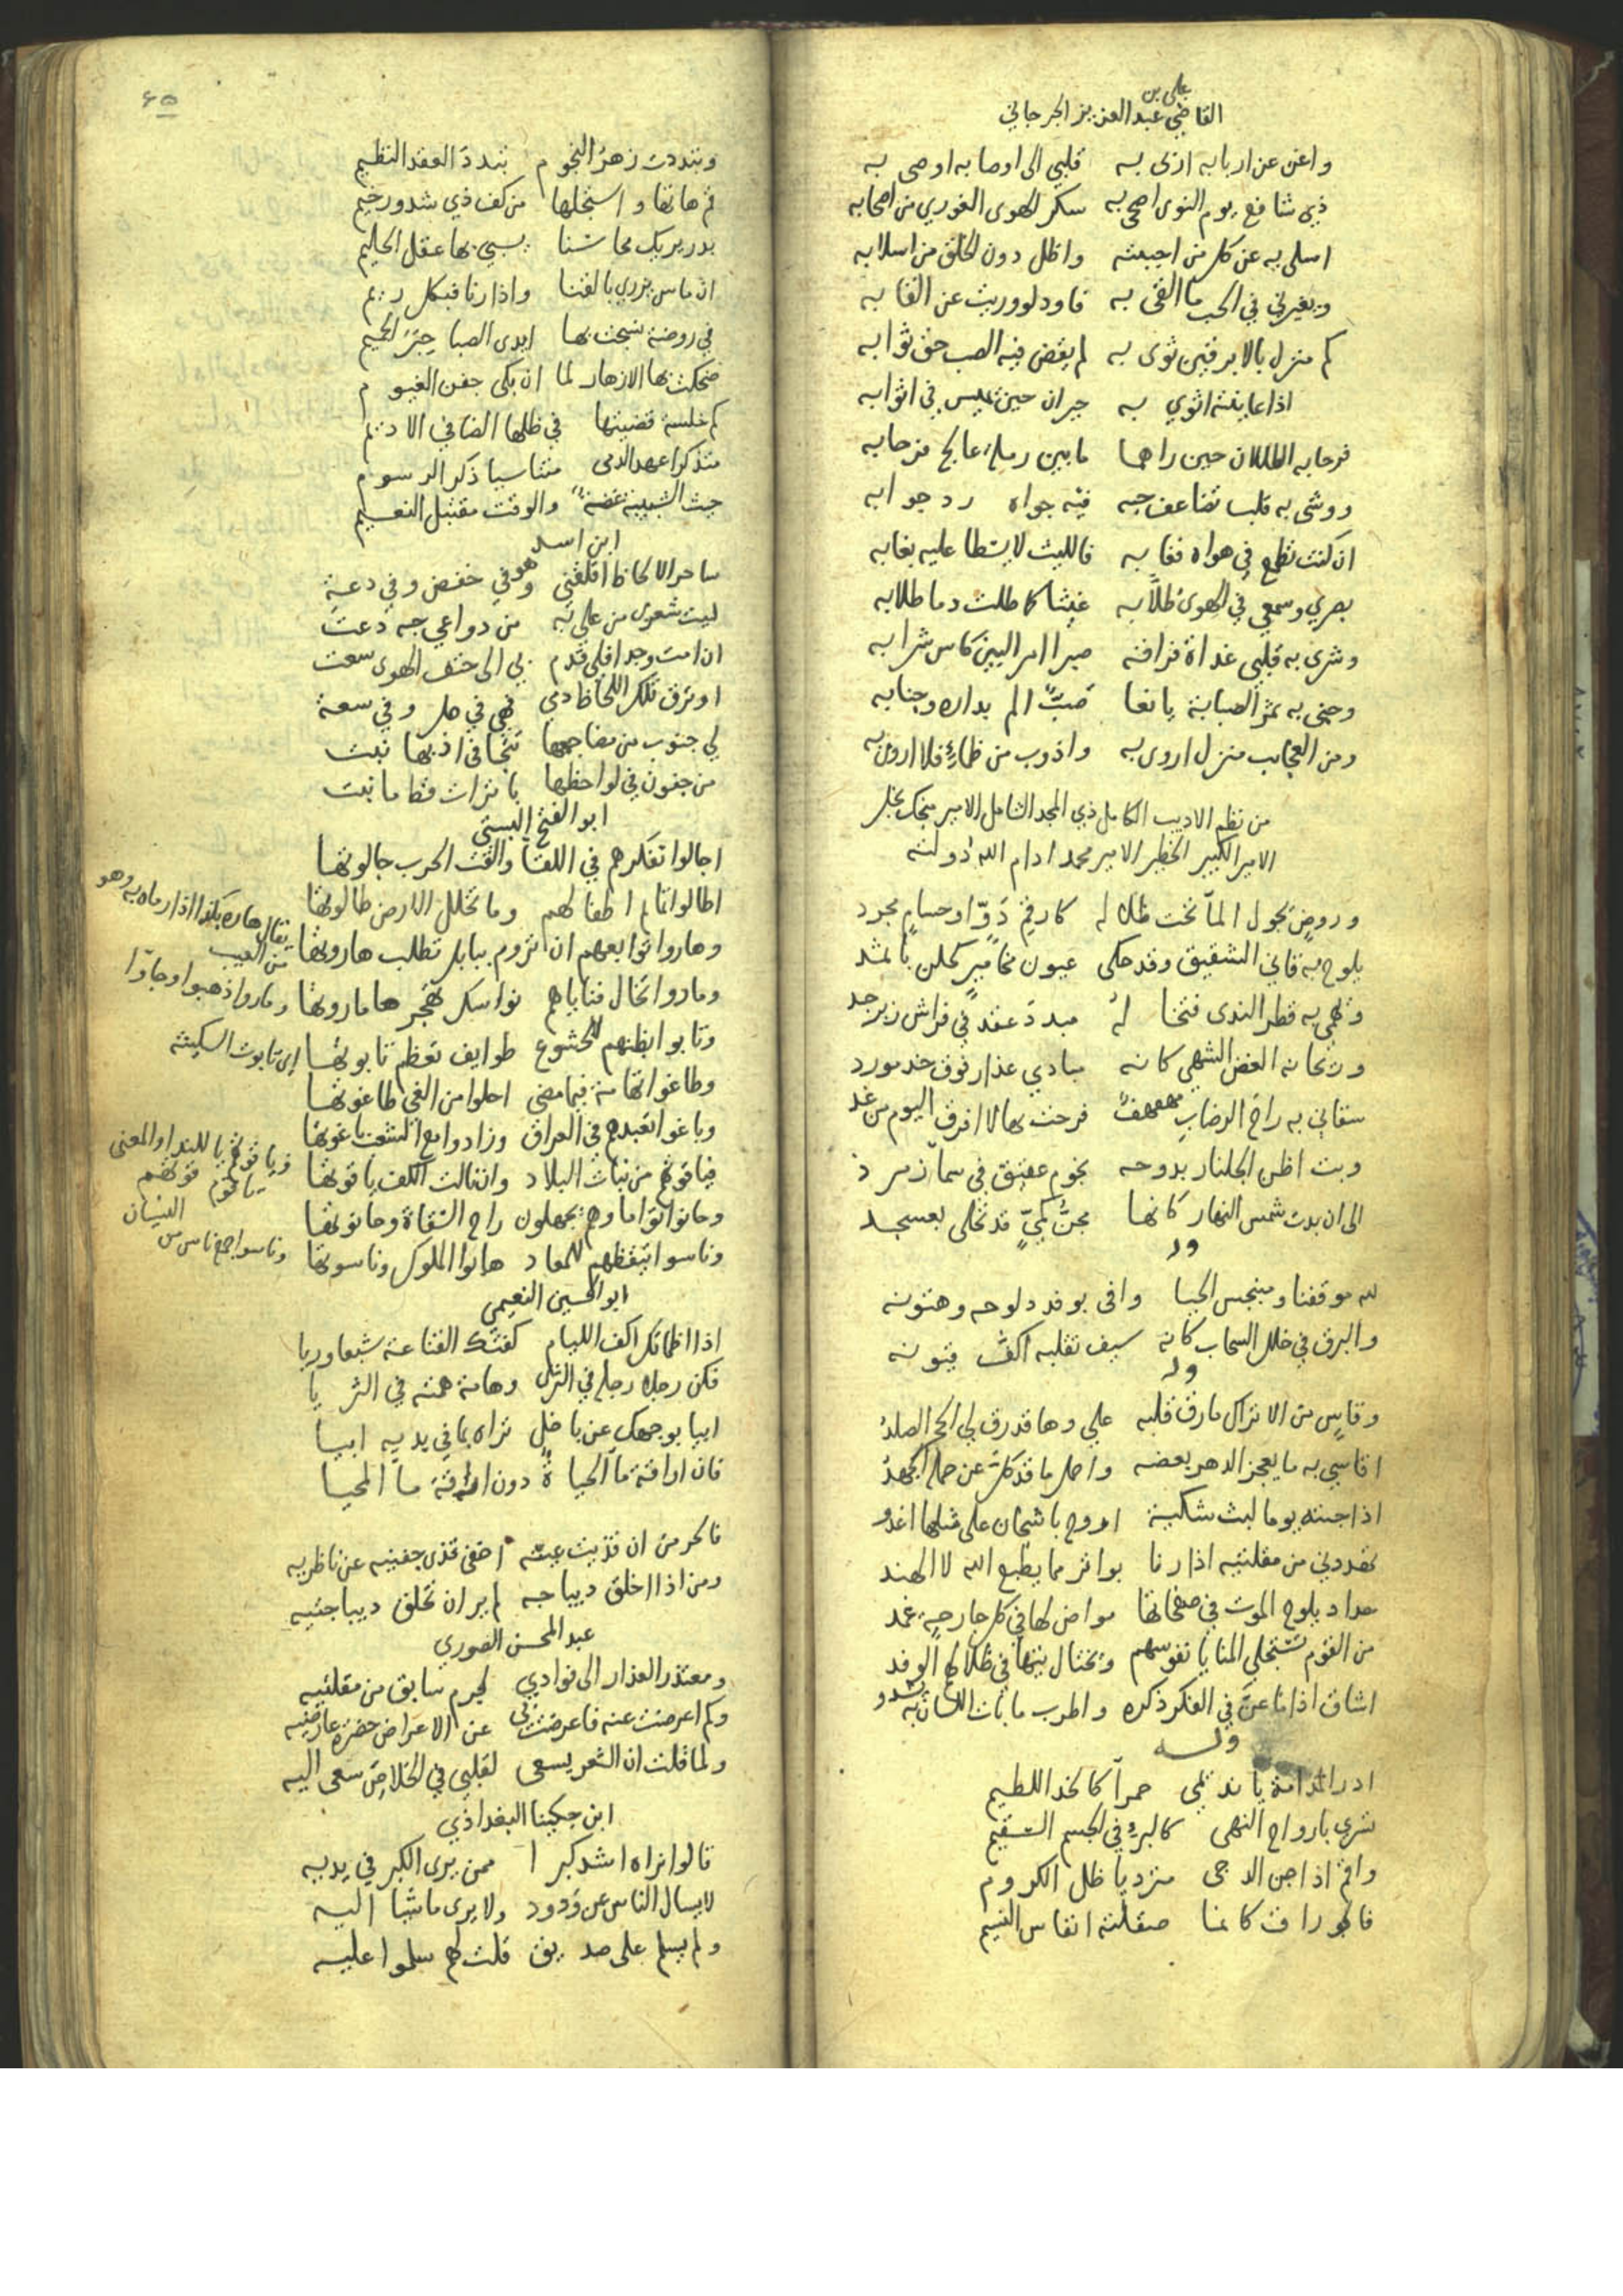 علي بن
القاضي عبد العزيز الجرجاني
واغن عن اربابه ازى به قلبي الى اوصابه اوصى به
ذي شافع يوم النوى اصحى به سكر الهوى الغوري من اصحابه
اسلى به عن كل من احببته واظل دون الخلق من اسلابه
ويغيرني في الحب ما القى به فاود لو وريت عن القابه
كم منزل بالابرقين ثوى به لم يقض فيه الصب حق ثوابه
اذا عاينته اثوي به جيران حين يميس في اثوابه
فرحا به الطللان حين راهما ما بين رملة عالج فرحابه
ووشى به قلبا تضاعف حبه فيه جواه رد جوابه
ان كنت تطمع في هواه فغابه فالليث لا يسطا عليه بغابه
بصري وسمعي في الهوى طلّابه غيثا كاطلت دما طلابه
وشرى به قلبي غداة فراقه صبرا امر البين كاس شرابه
وجنى به ثمر الصبابة يانعا صبّ الم بداره وجنابه
ومن العجائب منزل اروى به واذوب من ظمائي فلا اروى به
من نظم الاديب الكامل ذي المجد الشامل الامير منجك نجل
الامير الكبير الخطير الامير محمد ادام الله دولته
وروض يجول المآ تحت ظلاله كارقم دوّ او حسام مجرد
يلوح به قاني الشقيق وقد حكى عيون مخامير كحلن باثمد
وتهمي به قطر الندى فتخاله مبدد عقد في فراش زبرجد
وريحانه الغض الشهي كانه مبادي عذار فوق خد مورد
سقاني به راح الرضاب مهفهف فرحت بها لا افرق اليوم من غد
وبت اظن الجلنار بدوحه نجوم عقيق في سمآ زمرد
الى ان بدت شمس النهار كانها مجنّ كميّ قد تحلى بعسجد
وله
لله موقفنا ومنبجس الحيا وافى بوفد دلوحه وهتونه
والبرق في خلل السحاب كانه سيف تقلبه اكف قيونه
وله
وقاس من الاتراك ما رق قلبه علي وها قد رق لي الحجر الصلد
اقاسي به ما يعجز الدهر بعضه واحمل ما قد كل عن حمله الجهد
اذا جئته يوما لبث شكية اروح باشجان على مثلها اغدو
تهددني من مقلتيه اذا رنا بواتر مما يطبع الله لا الهند
حداد يلوح الموت في صفحاتها مواض لها في كل جارحة غمد
من القوم تستحلي المنايا نفوسهم وتختال تيها في ظلالهم الوفد
اشاق اذا ما عنّ في الفكر ذكره واطرب ما بات اللسان به يشدو
وله
ادر المدامة يا نديمي حمرآ كالخد اللطيم
تسري بارواح النهى كالبرء في الجسم السقيم
واقم اذا جن الدجى متردياً ظل الكروم
فالجو راق كانما صقلته انفاس النسيم
٦٥
وتبددت زهر النجوم تبدد العقد النظيم
قم هاتها واستجلها من كف ذي شدو رخيم
بدر يريك محاسنا يسبي بها عقل الحليم
ان ماس يزري بالقنا واذا رنا فبكل ريم
في روضة نسجت بها ايدى الصبا حبر الحيم
ضحكت بها الازهار لما ان بكى جفن الغيوم
كم خلسة قضيتها في ظلها الضافي الاديم
متذكرا عهد الدمى متناسيا ذكر الرسوم
حيث الشبيبة غضة والوقت مقتبل النعيم
ابن اسد
ساحر الالحاظ اقلقني وهو في خفض وفي دعة
ليت شعرى من علي به من دواعي حبه دعت
ان امت وجدا فلي قدم بي الى حتف الهوى سعت
او ترق تلك اللحاظ دمي فهي في حل وفي سعة
لي جنوب من مضاجعها تتجافى اذ بها نبت
من جفون في لواحظها باترات قط ما نبت
ابو الفتح البستي
اجالوا تفكرهم في اللقآ والقت الحرب جالوتها
اطالوا اناملم اطفالهم وما تحلل الارض طالوتها
وهاروا توابعهم ان تروم ببابل تطلب هاروتها
يقال هاره بكذا اذا رماه به وهو
من العيب
وماروا تخال فتاياهم نواسك تهجر هاماروتها
وماروا ذهبوا وجاوّا
وتابوا بظنهم للخشوع طوايف تعظم تابوتها
اى تابوت السكينة
وطاغوا تهامة فيما مضى احلوا من الغي طاغوتها
وباغوا تعبدهم في العراق وزادوا مع الشعث باغوتها
فياقوتهم من نبات البلاد وان نالت الكف ياقوتها
فياقوتهم يا للندا والمعنى
يا قوم قوتهم
وحانوا تواما وهم يجهلون راح السقاة وحانوتها
وناسوا تيقظهم للمعاد هانوا الملوك وناسوتها
وناسوا جمع ناس من
النسيان
ابو الحسين النعيمي
اذا اظماتك اكف اللئام كفتك القناعة شبعا وريا
فكن رجلا رجله في الثرى وهامة همته في الثريا
ابيا بوجهك عن باخل تراه بما في يديه ابيا
فان اراقة مآ الحياة دون اراقة مآ المحيا
فاكرم من ان قذيت عينه اخفى قذى جفنيه عن ناظريه
ومن اذا اخلق ديباجه لم ير ان تخلق ديباجتيه
عبد المحسن الصوري
ومعتذر العذار الى فوادي لجرم سابق من مقلتيه
وكم اعرضت عنه فاعرضت بي عن الاعراض خضرة عارضيه
ولما قلت ان الشعر يسعى لقلبي في الخلاص سعى اليه
ابن جكينا البغداذي
قالوا نراه اشد كبرا ممن يرى الكبر في يديه
لا يسال الناس عن ودود ولا يرى ماشيا اليه
ولم يسلم على صديق قلت لهم سلموا عليه